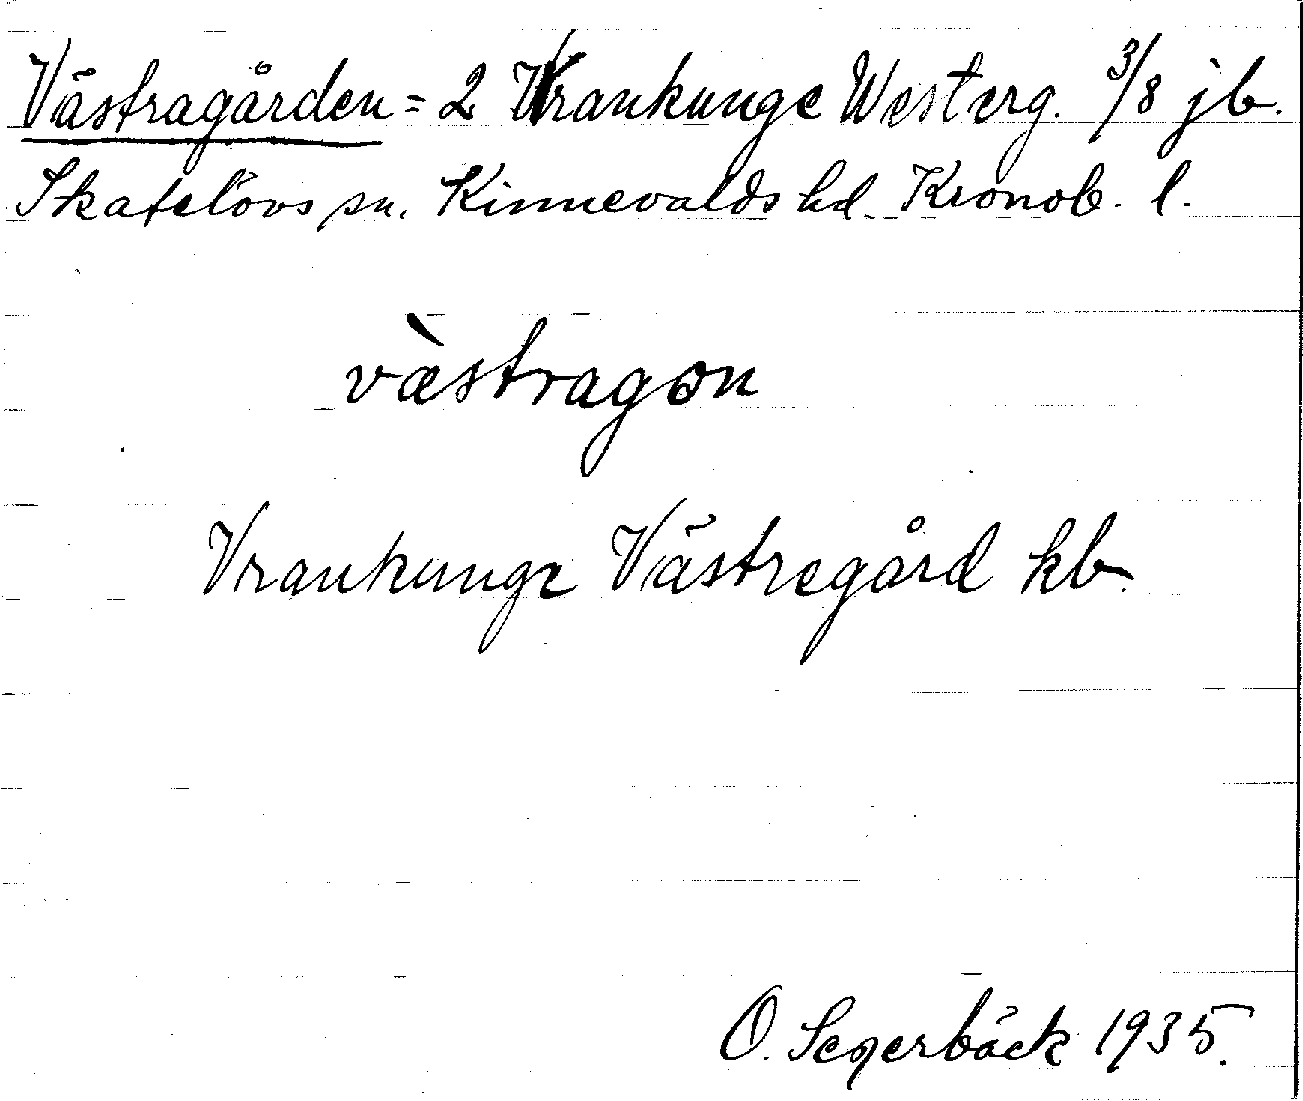 Västragården = 2 Vrankunge Westerg. 3/8 jb.
Skatelövs sn. Kinnevalds hd. Kronob. l.
væ̀stragon
Vrankunge Västregård kb.
O. Segerbäck 1935.